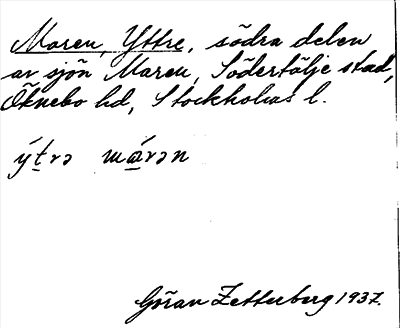 Maren, Yttre, södra delen
av sjön Maren, Södertälje stad,
Öknebo hd, Stockholms l.
ýt̲rə má̲rən
Göran Zetterberg 1937.